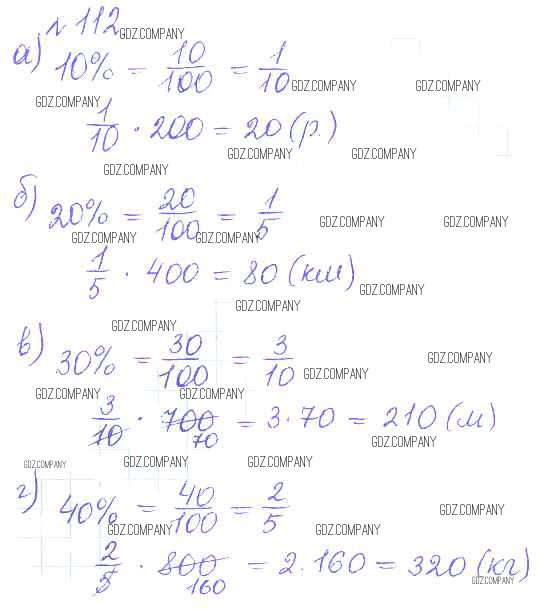 №112
GDZ.COMPANY
а) 10% = 10/100 = 1/10
GDZ.COMPANY GDZ.COMPANY
GDZ.COMPANY
1/10 · 200 = 20 (р.)
GDZ.COMPANY GDZ.COMPANY
GDZ.COMPANY
б) 20% = 20/100 = 1/5
GDZ.COMPANY GDZ.COMPANY
GDZ.COMPANY GDZ.COMPANY
1/5 · 400 = 80 (км)
GDZ.COMPANY
GDZ.COMPANY
GDZ.COMPANY
в) 30% = 30/100 = 3/10
GDZ.COMPANY
GDZ.COMPANY
GDZ.COMPANY GDZ.COMPANY
3/10 · 700 = 3·70 = 210 (м)
70
GDZ.COMPANY
GDZ.COMPANY GDZ.COMPANY GDZ.COMPANY
г) 40% = 40/100 = 2/5
GDZ.COMPANY
GDZ.COMPANY GDZ.COMPANY
2/5 · 800 = 2·160 = 320 (кг)
160
GDZ.COMPANY